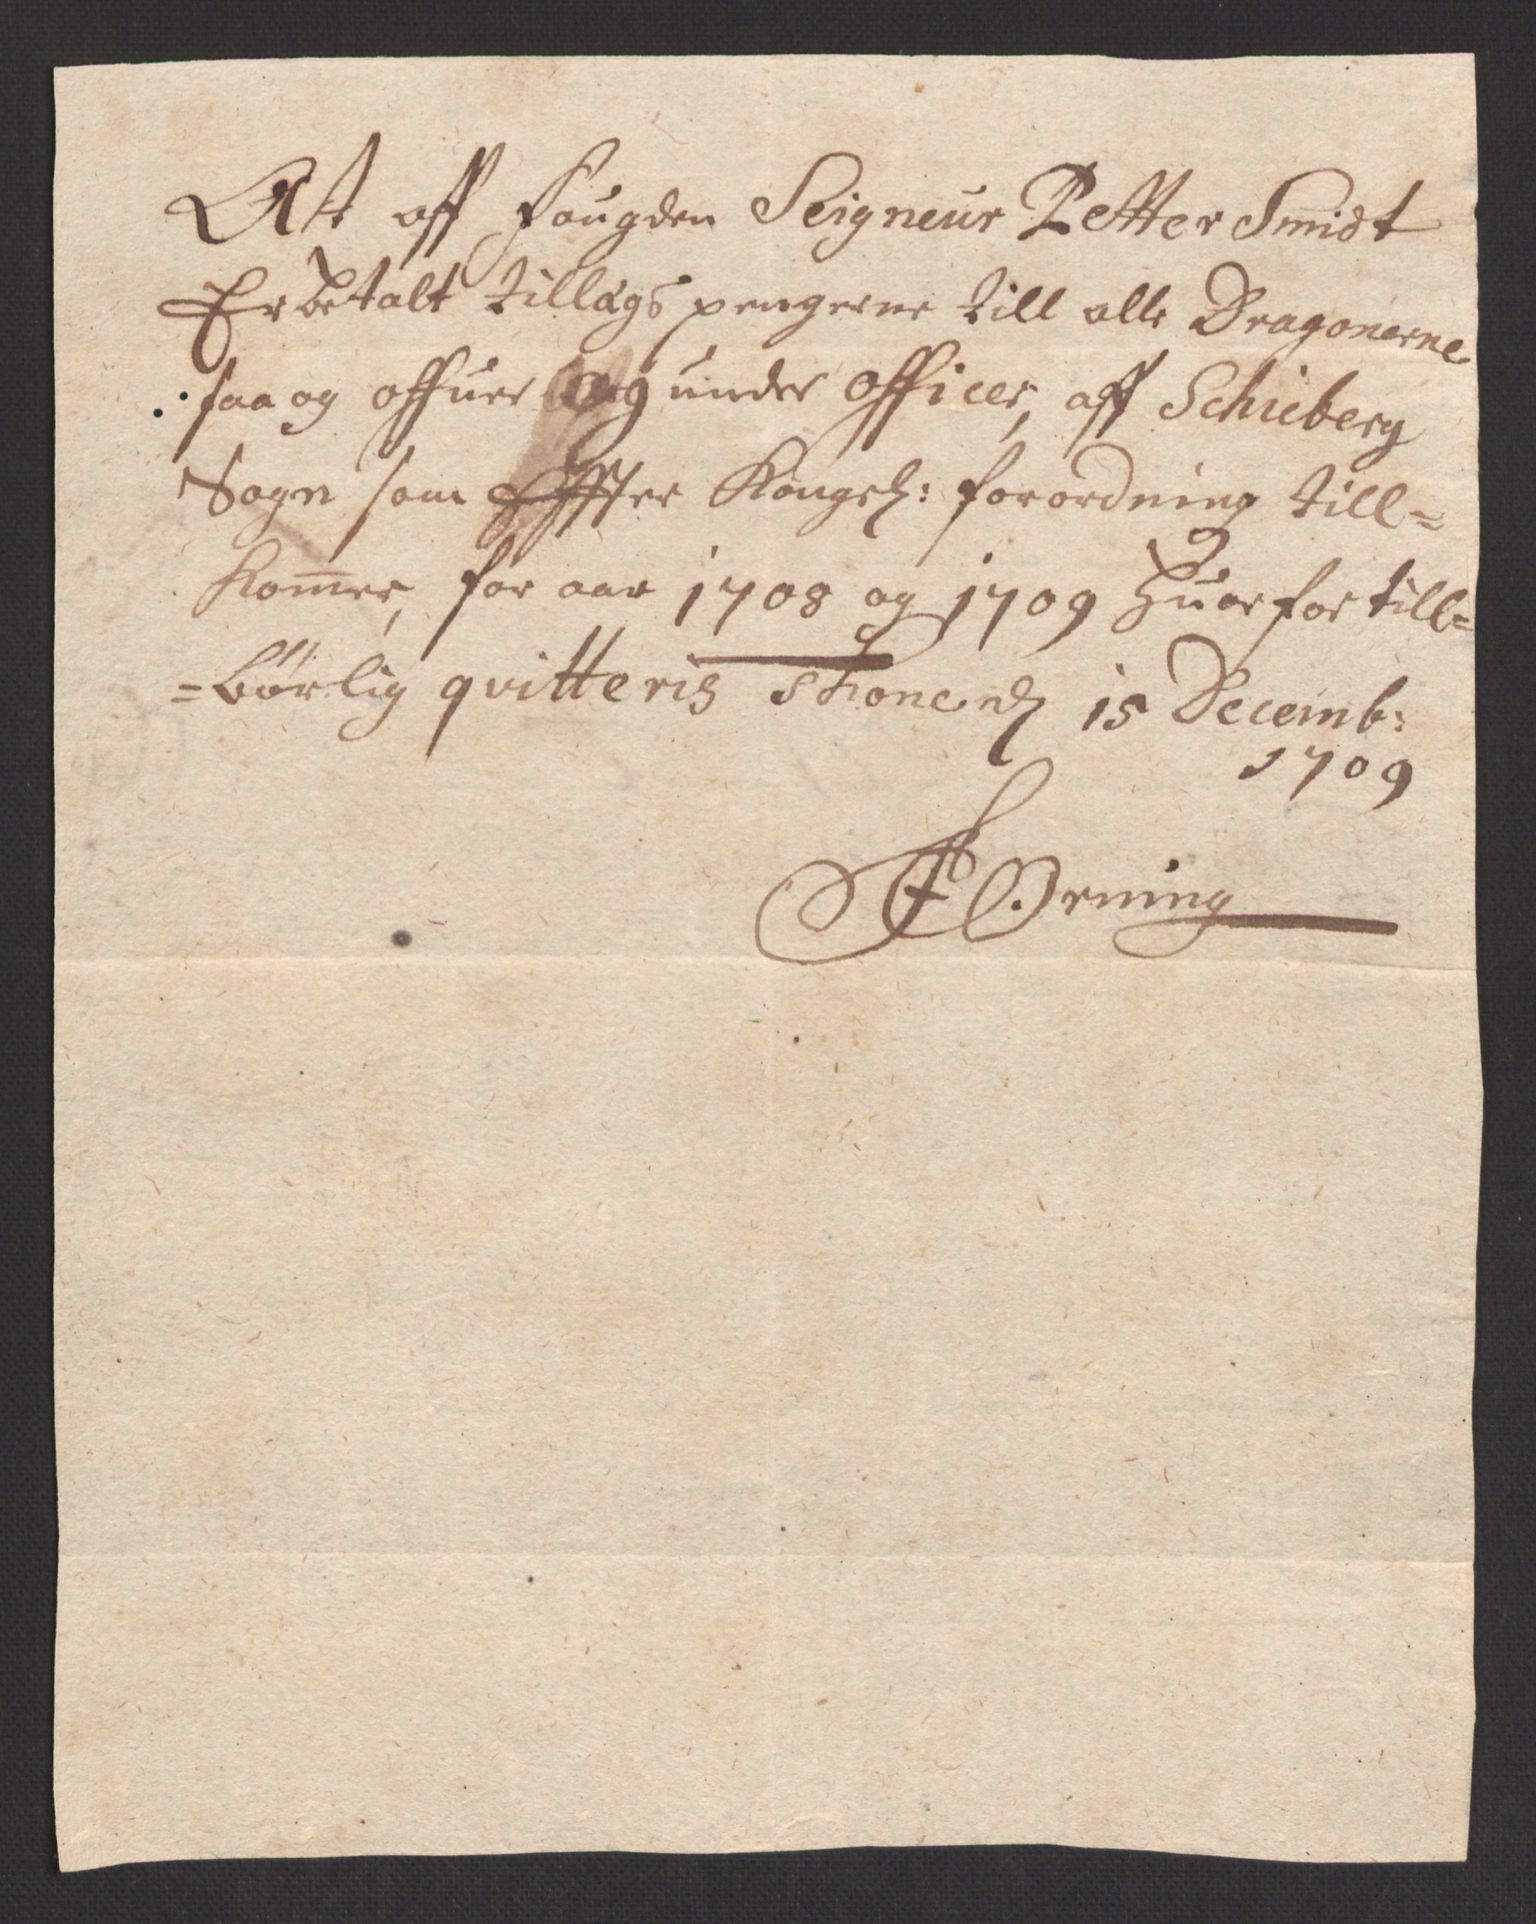 At aff fougden Seigneur Petter Smidt
Er betalt tillægs pengerne till alle Dragonerne
saa og offuer og under officer, aff Schieberg
Sogn som Effter Kongel: forordning till=
komer, for aar 1708 og 1709 huorfor till=
=børlig qvitteris Skone d 15 Decemb:
1709
F Ørning